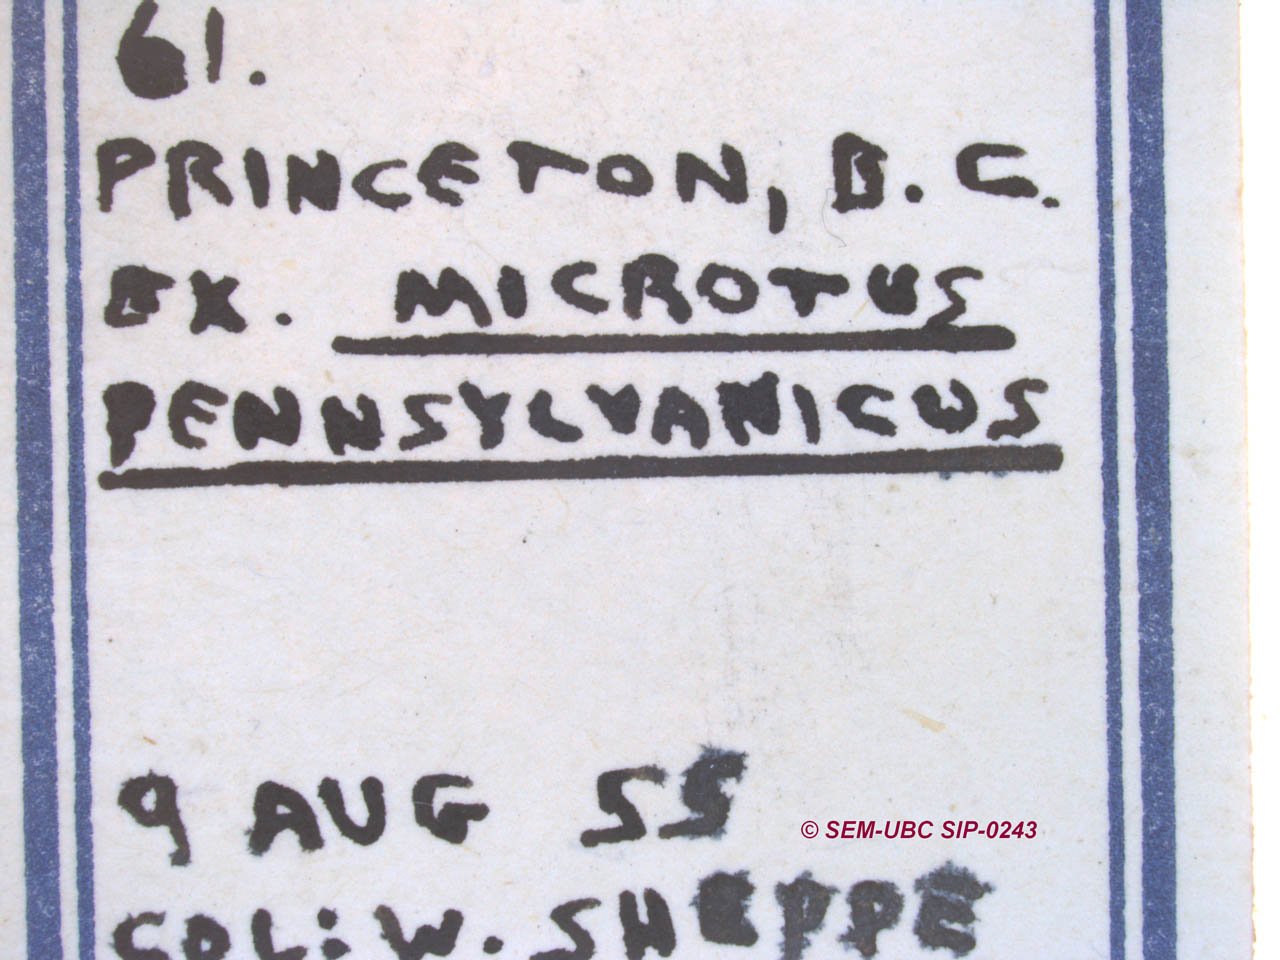 61.
PRINCETON, B.C.
EX. MICROTUS
PENNSYLVANICUS
9 AUG 55
© SEM-UBC SIP-0243
COL: W. SHEPPE